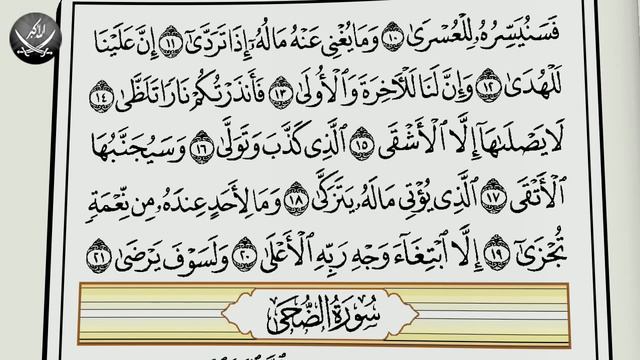 فَسَنُيَسِّرُهُۥ لِلْعُسْرَىٰ ١٠ وَمَا يُغْنِى عَنْهُ مَالُهُۥٓ إِذَا تَرَدَّىٰٓ ١١ إِنَّ عَلَيْنَا
لَلْهُدَىٰ ١٢ وَإِنَّ لَنَا لَلْءَاخِرَةَ وَٱلْأُولَىٰ ١٣ فَأَنذَرْتُكُمْ نَارًا تَلَظَّىٰ ١٤
لَا يَصْلَىٰهَآ إِلَّا ٱلْأَشْقَى ١٥ ٱلَّذِى كَذَّبَ وَتَوَلَّىٰ ١٦ وَسَيُجَنَّبُهَا
ٱلْأَتْقَى ١٧ ٱلَّذِى يُؤْتِى مَالَهُۥ يَتَزَكَّىٰ ١٨ وَمَا لِأَحَدٍ عِندَهُۥ مِن نِّعْمَةٍ
تُجْزَىٰٓ ١٩ إِلَّا ٱبْتِغَآءَ وَجْهِ رَبِّهِ ٱلْأَعْلَىٰ ٢٠ وَلَسَوْفَ يَرْضَىٰ ٢١
سُورَةُ الضُّحَىٰ